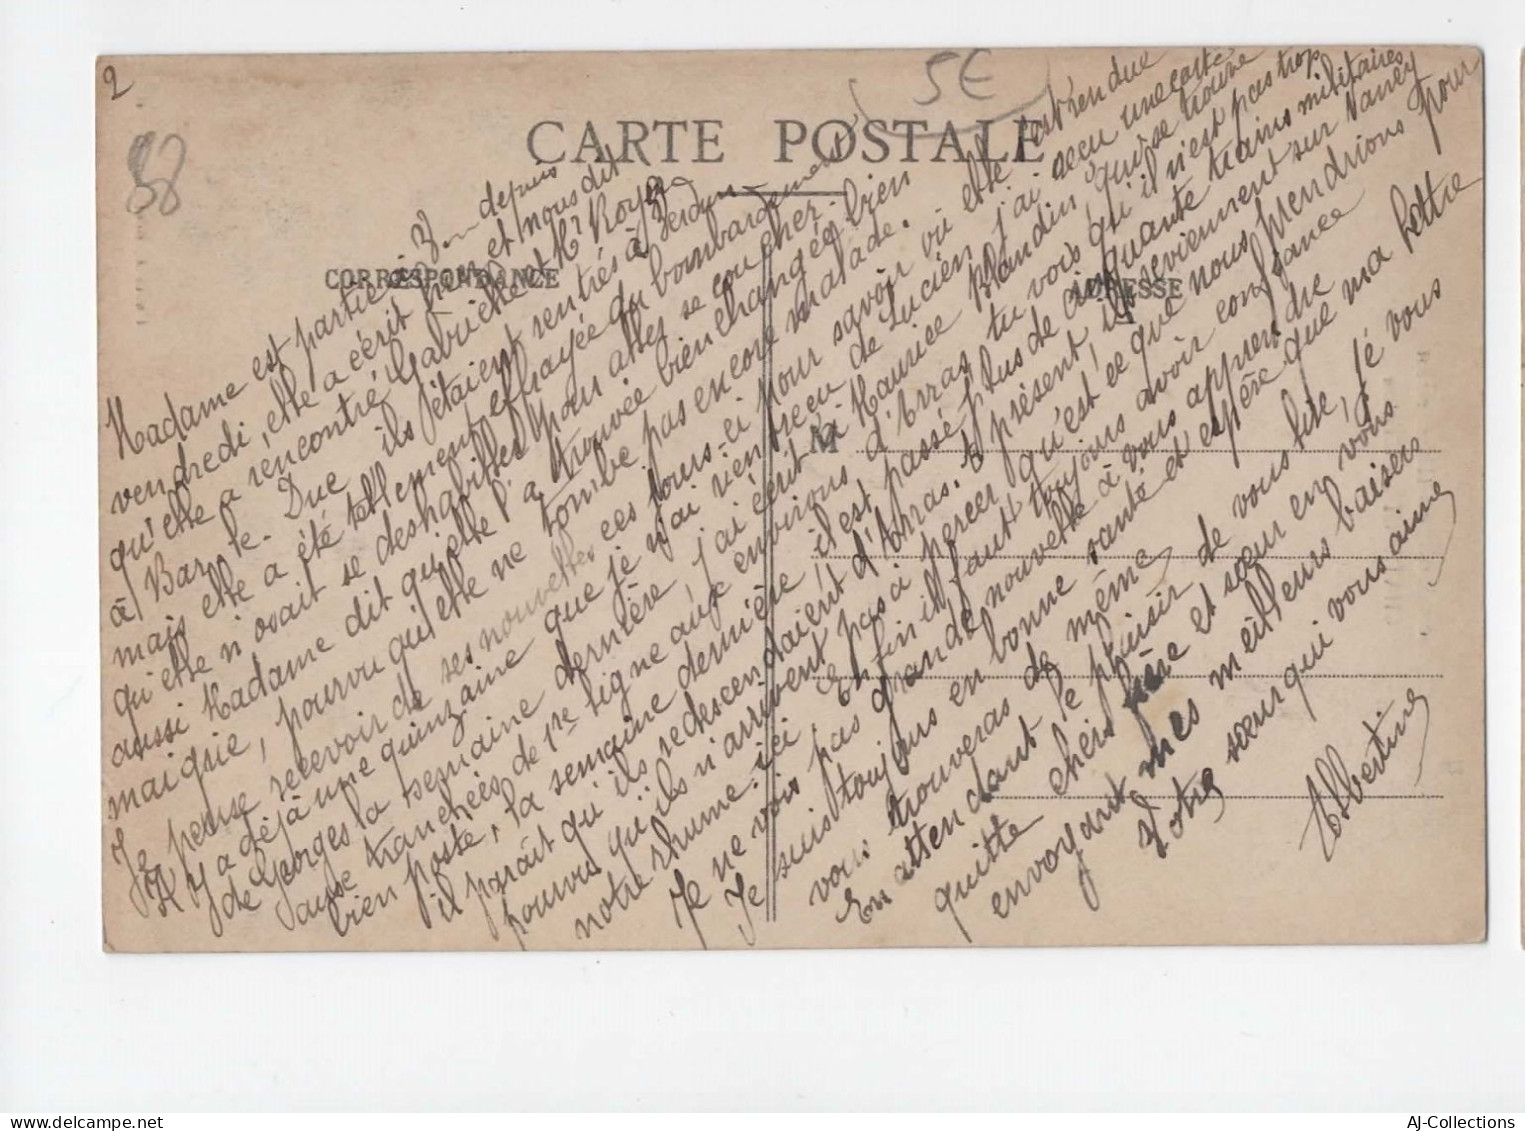 2
5€
58
CARTE POSTALE
CORRESPONDANCE
ADRESSE
M
Madame est partie à depuis
vendredi, elle a écrit hier et nous dit
qu'elle a rencontré Gabrielle et Mr Royer
à Bar le Duc ils étaient rentrés à Verdun
mais elle a été tellement effrayée du bombardement
qu'elle n'osait se deshabiller pour aller se coucher.
aussi Madame dit qu'elle l'a trouvée bien changée, bien
maigrie, pourvu qu'elle ne tombe pas encore malade.
Je pense recevoir de ses nouvelles ces jours-ci pour savoir où elle est rendue
Il y a déjà une quinzaine que je n'ai rien reçu de Lucien, j'ai reçu une carte
de Georges la semaine dernière, j'ai écrit à Maurice Blandin qui se trouve
aux tranchées de 1re ligne aux environs d'Arras, tu vois qu'il n'est pas trop
bien posté, la semaine dernière il est passé plus de cinquante trains militaires
il paraît qu'ils redescendaient d'Arras. à présent, ils reviennent sur Nancy
pourvu qu'ils n'arrivent pas à percer qu'est ce que nous prendrions pour
notre rhume ici. Enfin il faut toujours avoir confiance
Je ne vois pas grande nouvelle à vous apprendre
Je suis toujours en bonne santé et espère que ma lettre
vous trouveras de même
En attendant le plaisir de vous lire, je vous
quitte chers frère et sœur en vous
envoyant mes meilleurs baisers
Votre sœur qui vous aime
Albertine
AJ-Collections